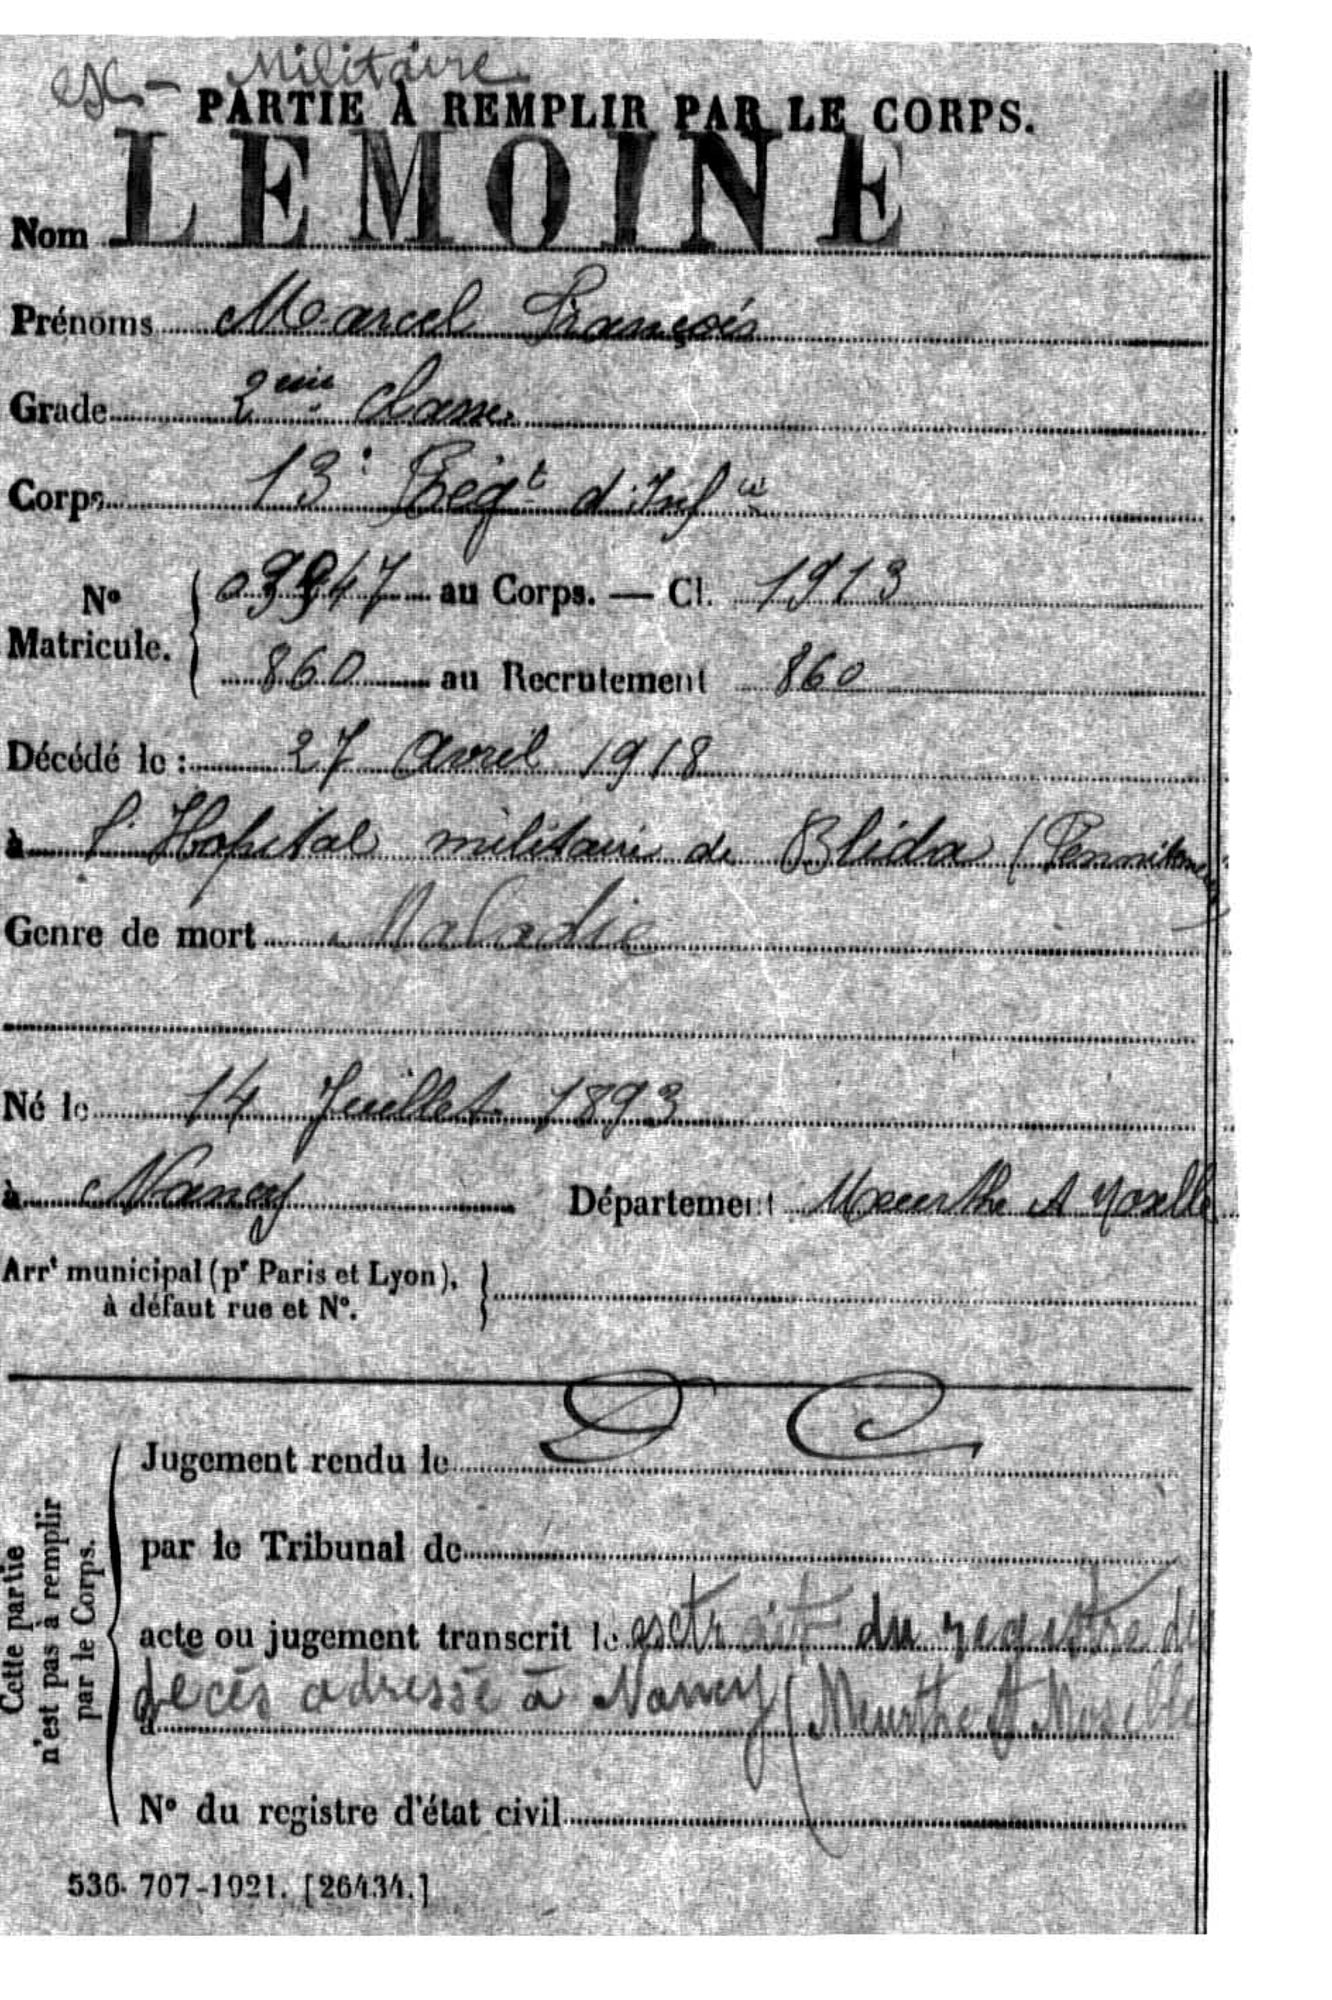 ex - Militaire
PARTIE À REMPLIR PAR LE CORPS.
Nom LEMOINE
Prénoms Marcel François
Grade 2eme Classe
Corps 13e Régt d'Infie
No Matricule. { 03947 au Corps. — Cl. 1913
860 au Recrutement 860
Décédé le : 27 Avril 1918
à l'Hopital militaire de Blida (
Genre de mort Maladie
Né le 14 Juillet 1893
à Nancy Département Meurthe et Moselle
Arrt municipal (pr Paris et Lyon), }
à défaut rue et No.
Cette partie
n'est pas à remplir
par le Corps.
Jugement rendu le
par le Tribunal de
acte ou jugement transcrit le extrait du registre de
décès adressé à Nancy (Meurthe et Moselle
à
No du registre d'état civil
536-707-1921. [26434.]